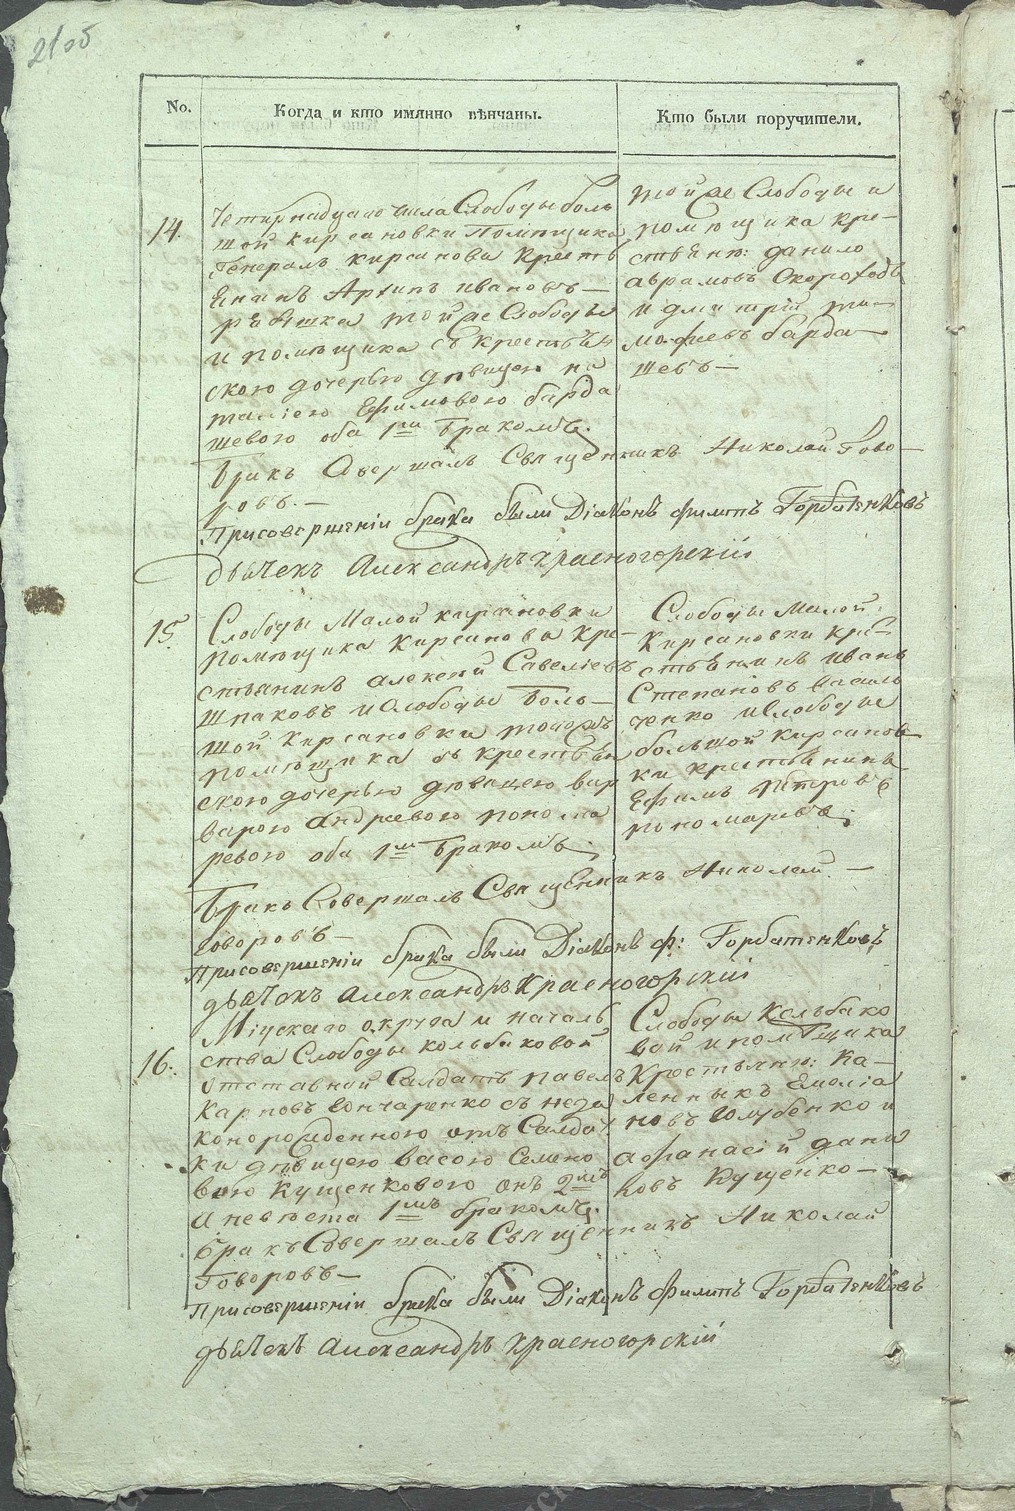 21об
No.
Когда и кто имянно вѣнчаны.
Кто были поручители.
14.
Четирнадцаго числа Слободы боль
шой Кирсановки Помѣщика
Генералъ Кирсанова Кресть
Енинъ Архипъ Ивановъ —
рѣпшка той же Слободы
и помѣщика съ крестьян
скою дочерью дѣвицею на
таліею Ефимовою барда
шевою оба 1мъ бракомъ.
той же Слободы и
помѣщика кре–
стьяню: данило
аврамовъ Скороходъ
и дмитрій ти–
мофиевъ барда–
шевъ —
бракъ Совершалъ Священникъ Николай Гово–
ровъ. —
При совершеніи брака были Діаконъ филипъ Горбатенковъ
дьячекъ Александръ Красногорскій
15
Слободы Малой кирсановки
помѣщика Кирсанова Кре–
стьянинъ алексей Савелиевъ
Шпаковъ и Слободы Боль–
шой Кирсановки тогожъ
помѣщика съ крестьян
скою дочерью дѣвицею вар
варою андреевою понома
ревою оба 1мъ бракомъ;
Слободы Малой
Кирсановки кре–
стьянинъ иванъ
Степановъ василь
ченко и Слободы
большой Кирсанов
ки крестьянинъ
Ефимъ петровъ
пономаревъ;
бракъ Совершалъ Священникъ Николай —
говоровъ —
При совершеніи брака были Діаконъ ф: Горбатенковъ
дьячокъ Александръ Красногорскій
16.
Міускаго округа и началь
ства Слободы кольбаковой
отставной Салдатъ павелъ
Карповъ Гончаренко съ неза
конорожденною отъ Салдат
ки дѣвицею васою Семено
вою Кущенкового онъ 2мъ
а невѣста 1мъ бракомъ.
Слободы Кольбако
вой и помѣщика
Крестьяню: Ка–
ленныкъ Емеліа
новъ Голубенко и
афанасій дани
ловъ Кущенко —
бракъ Совершалъ Священникъ Николай
Говоровъ —
При совершеніи брака были Діаконъ филипъ Горбатенковъ
дьячекъ Александръ Красногорскій